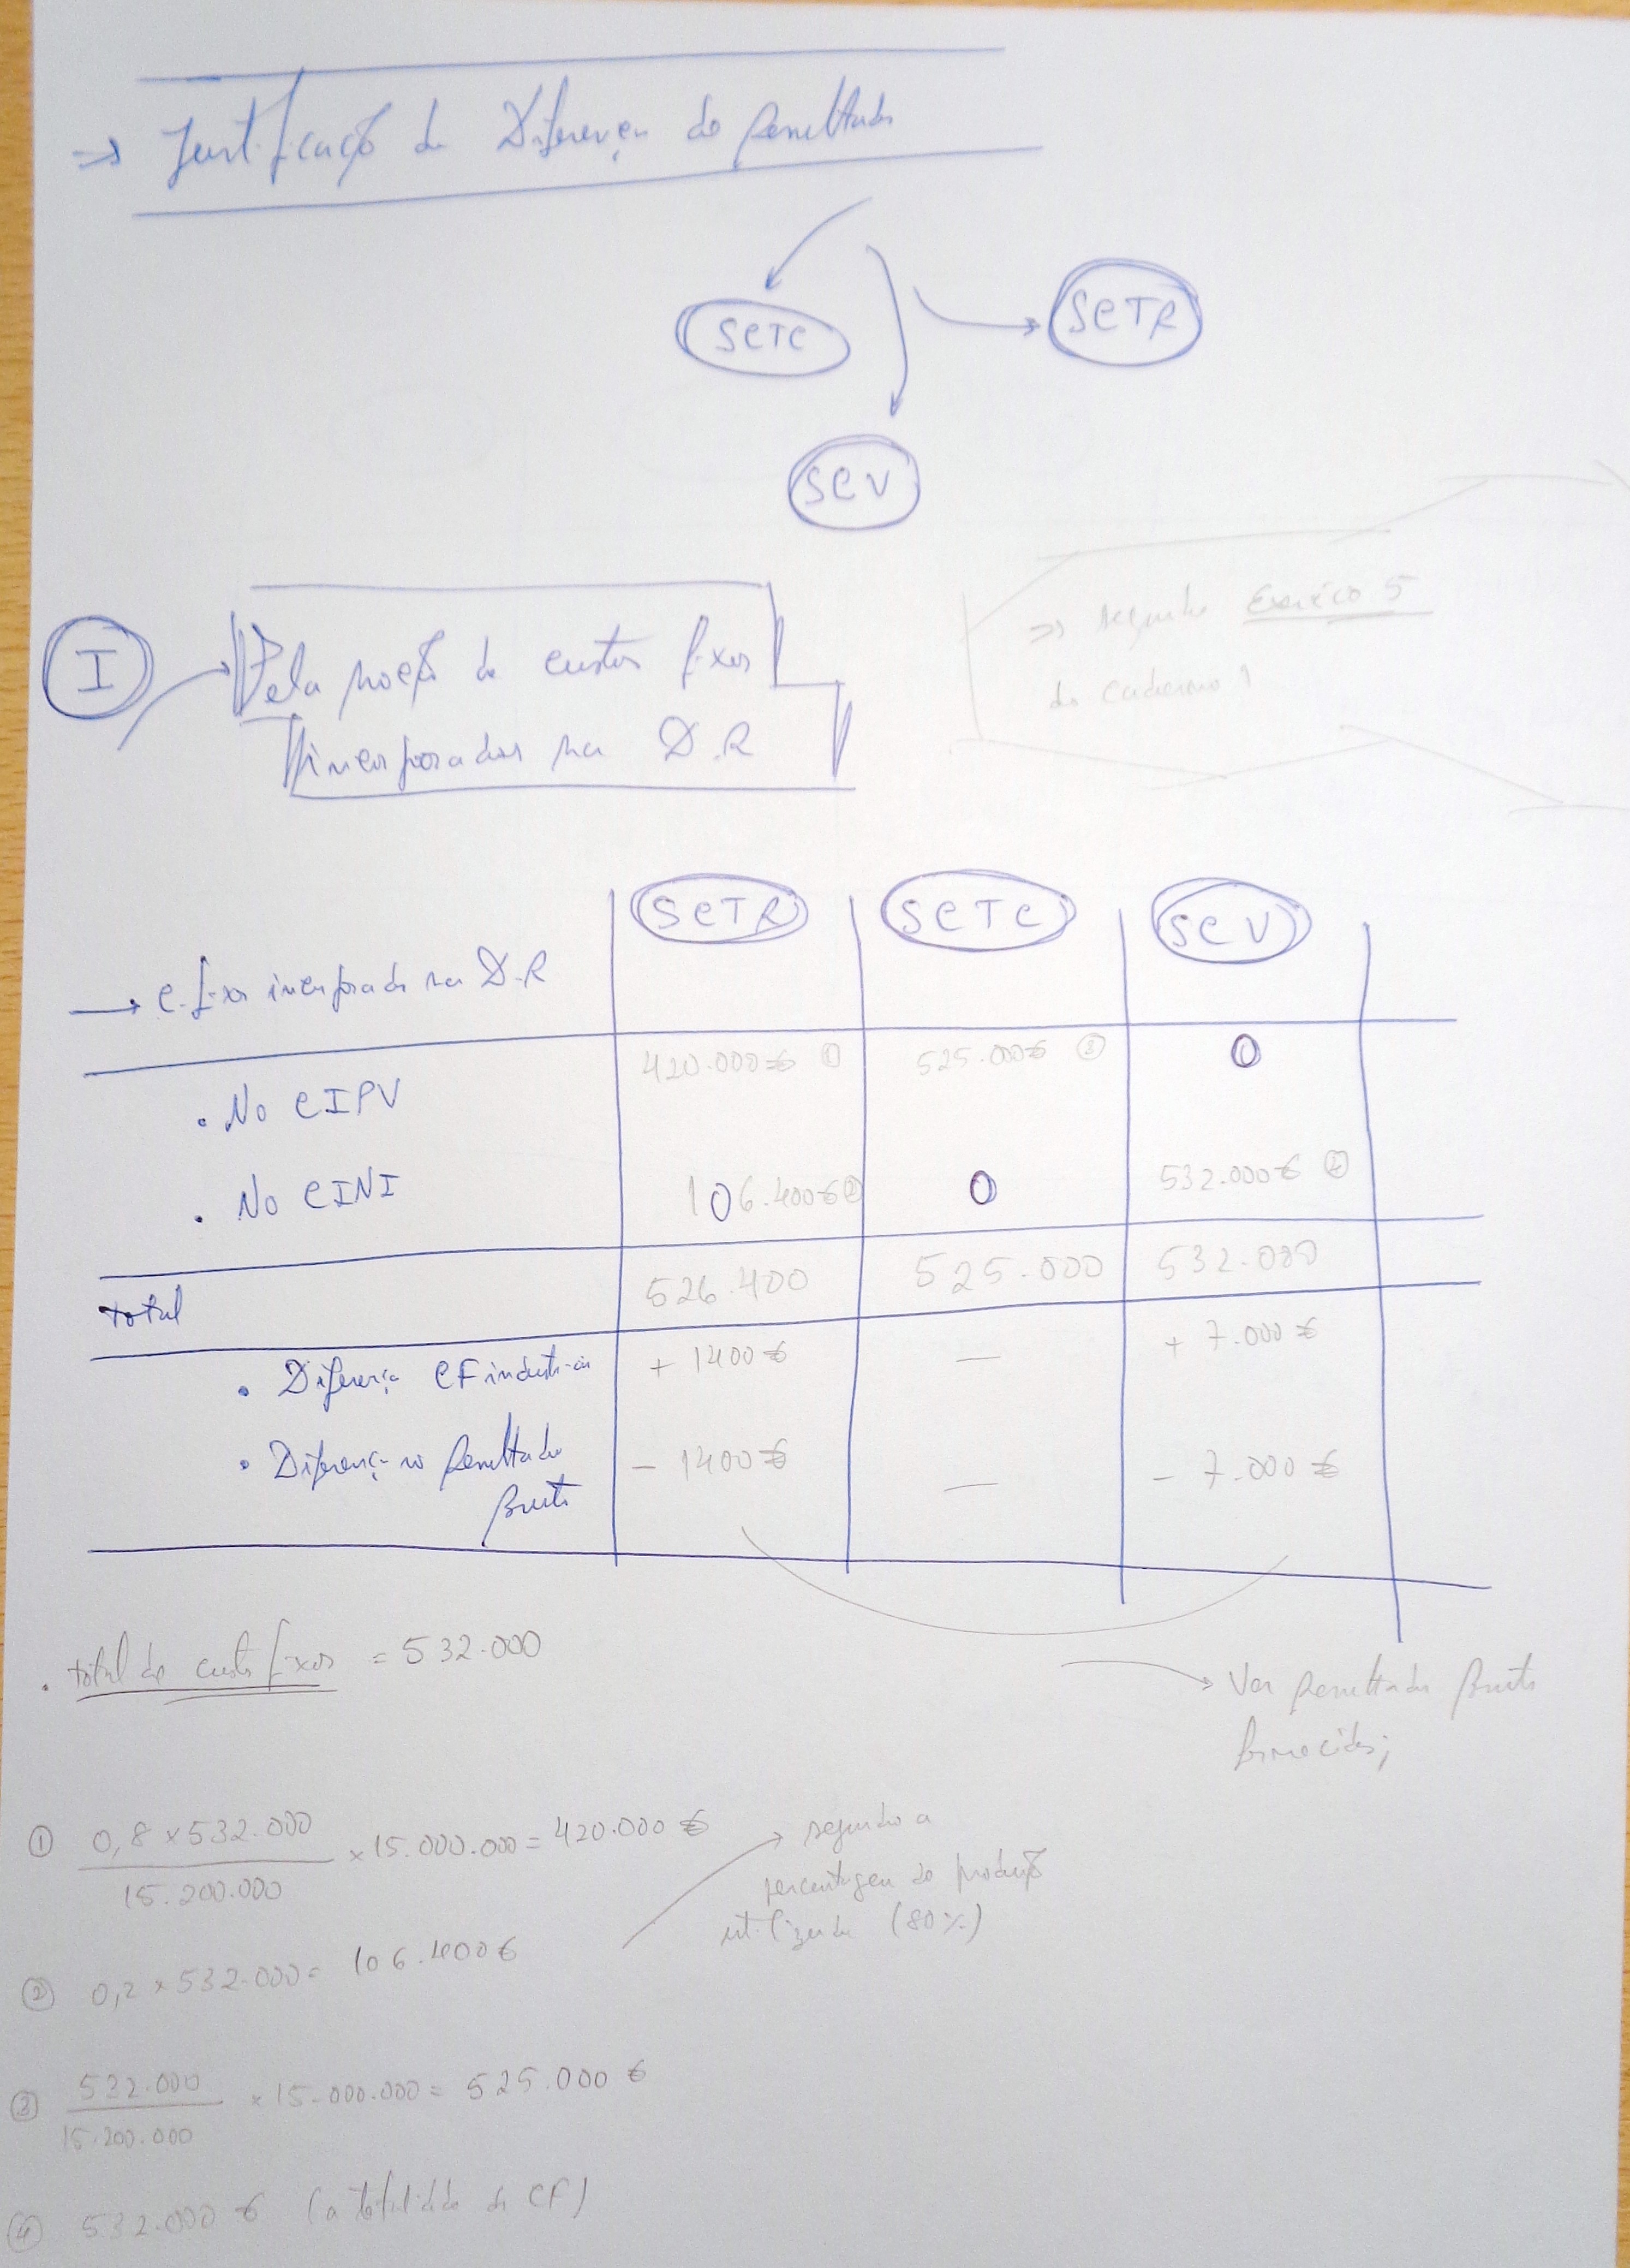 ⇒ Justificação da Diferença de Resultados
SCTC
SCTR
SCV
I
Pela noção de custos fixos
incorporados na D.R
⇒ segundo Exercico 5
do caderno 1
SCTR SCTC SCV
→ C. fixos incorporados na D.R
420.000€ ① 525.000€ ③ 0
. No CIPV
. No CINI 106.400€② 0 532.000€ ④
total 526.400 525.000 532.000
• Diferença CF industriais + 1400€ — + 7.000€
• Diferença no Resultado - 1400€ — - 7.000€
Bruto
. total de custos fixos = 532.000
→ Ver Resultados Brutos
fornecidos;
① 0,8 × 532.000
15.200.000
× 15.000.000 = 420.000€
→ segundo a
percentagem de produção
utilizada (80%)
② 0,2 × 532.000 = 106.400€
③ 532.000
15.200.000
× 15.000.000 = 525.000€
④ 532.000€ (a totalidade de CF)